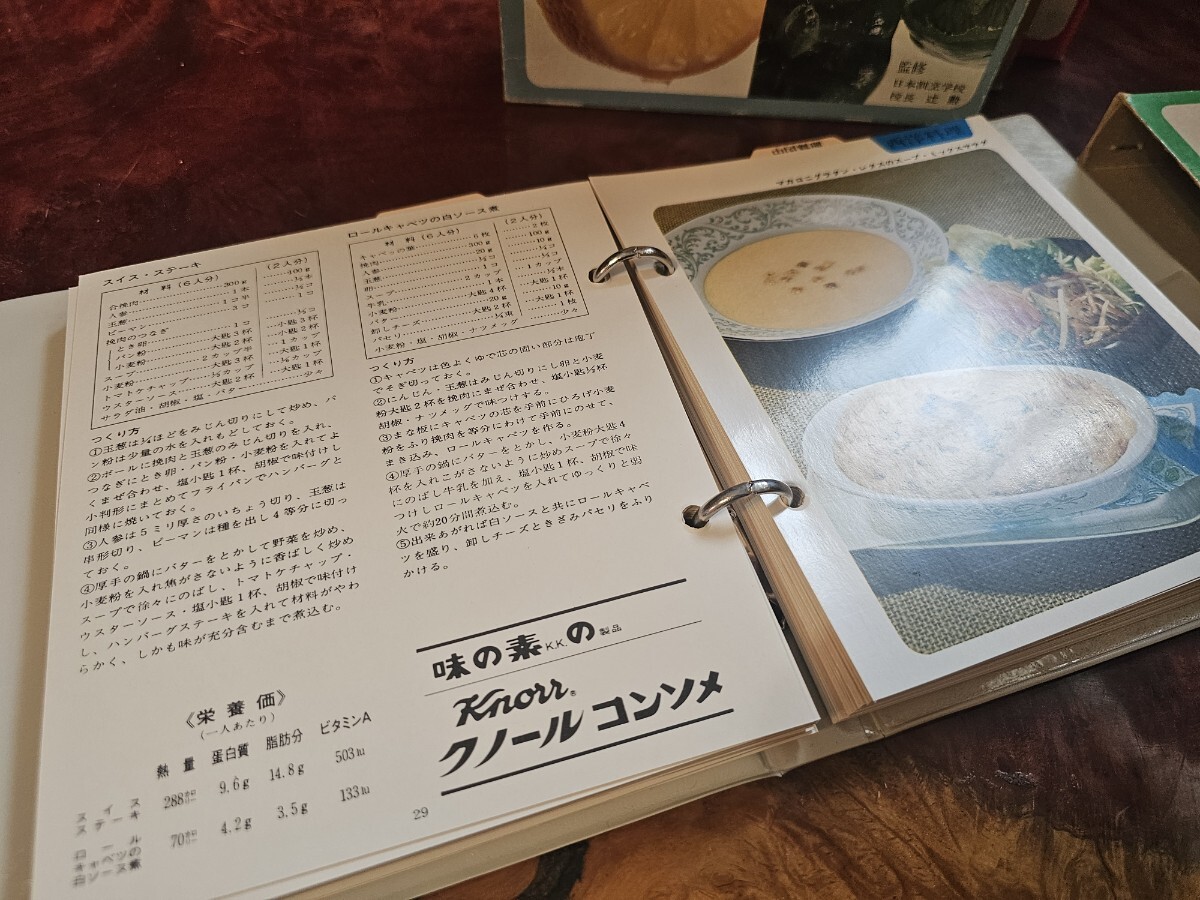 監修
日本割烹学校
校長 辻 勲
西洋料理
マカロニグラタン・レタスのスープ・ミックスサラダ
スイス・ステーキ
材料(6人分) (2人分)
合挽肉 300g 100g
人参 1本 ⅓本
玉葱 1コ半
ピーマン 3コ 1コ
挽肉のつなぎ
とき卵 1コ ⅓コ
パン粉 大匙3杯 小匙3杯
小麦粉 大匙2杯 小匙2杯
スープ 2カップ半 1カップ
小麦粉 大匙3杯 大匙1杯
トマトケチャップ ½カップ
ウスターソース 大匙2杯 大匙1杯
サラダ油・胡椒・塩・バター 少々
つくり方
①玉葱は¼ほどをみじん切りにして炒め、パ
ン粉は少量の水を入れもどしておく。
②ボールに挽肉と玉葱のみじん切りを入れ、
つなぎにとき卵・パン粉・小麦粉を入れてよ
くまぜ合わせ、塩小匙1杯、胡椒で味付けし
小判形にまとめてフライパンでハンバーグと
同様に焼いておく。
③人参は5ミリ厚さのいちょう切り、玉葱は
串形切り、ピーマンは種を出し4等分に切っ
ておく。
④厚手の鍋にバターをとかして野菜を炒め、
小麦粉を入れ焦がさないように香ばしく炒め
スープで徐々にのばし、トマトケチャップ・
ウスターソース・塩小匙1杯、胡椒で味付け
し、ハンバーグステーキを入れて材料がやわ
らかく、しかも味が充分含むまで煮込む。
ロールキャベツの白ソース煮
材料(6人分) (2人分)
キャベツの葉 6枚 2枚
挽肉 300g 100g
人参 20g 10g
玉葱 ½コ
卵 1コ
スープ 2カップ 1カップ
牛乳 1本 ⅓本
小麦粉 大匙4杯 大匙1杯
バター 20g 10g
卸しチーズ 大匙2杯 大匙1杯
パセリ 1枝
小麦粉・塩・胡椒・ナツメッグ 少々
つくり方
①キャベツは色よくゆで芯の固い部分は庖丁
でそぎ切っておく。
②にんじん・玉葱はみじん切りにし卵と小麦
粉大匙2杯を挽肉にまぜ合わせ、塩小匙⅓杯
胡椒・ナツメッグで味つけする。
③まな板にキャベツの芯を手前にひろげ小麦
粉をふり挽肉を等分にわけて手前にのせて、
まき込み、ロールキャベツを作る。
④厚手の鍋にバターをとかし、小麦粉大匙4
杯を入れこがさないように炒めスープで徐々
にのばし牛乳を加え、塩小匙1杯、胡椒で味
つけしロールキャベツを入れてゆっくりと弱
火で約20分間煮込む。
⑤出来あがれば白ソースと共にロールキャベ
ツを盛り、卸しチーズときざみパセリをふり
かける。
《栄養価》
(一人あたり)
熱量 蛋白質 脂肪分 ビタミンA
スイスステーキ 288 9.6g 14.8g 503IU
ロールキャベツの白ソース煮 70 4.2g 3.5g 133IU
味の素K.K.の製品
Knorr®
クノールコンソメ
29